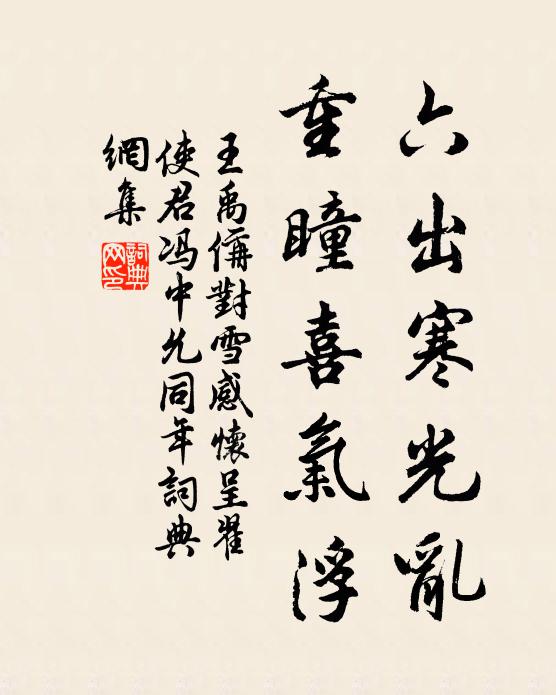 六出寒光亂
重瞳喜氣浮
王禹偁對雪感懷呈翟
使君馮中允同年詞典
網集
詞典
网印